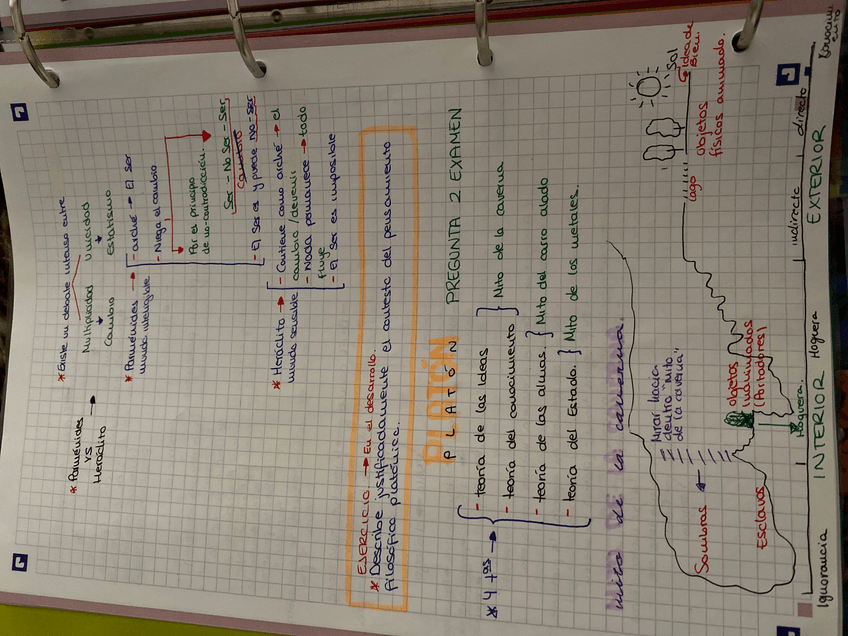 * Existe un debate intenso entre
Multiplicidad Unicidad
Cambio Estatismo
* Parménides
vs
Heráclito →
* Parménides →
mundo inteligible
- arché → El Ser
- Niega el cambio
Por el principio
de no-contradicción.
Ser - No Ser - Ser
cambio
- El Ser es y puede No-Ser
* Heráclito →
mundo sensible
- Contiene como arché → el
cambio/devenir
- Nada permanece → todo
fluye
- El Ser es imposible
EJERCICIO → En el desarrollo.
* Describe justificadamente el contexto del pensamiento
filosófico platónico.
PLATÓN
PLATÓN PREGUNTA 2 EXAMEN
* 4 tas →
- teoría de las Ideas
- teoría del conocimiento
} Mito de la caverna
- teoría de las almas. } Mito del carro alado
- teoría del Estado. } Mito de los metales.
mito de la caverna.
Sol
Idea de
Bien.
Mirar hacia
dentro "mito
de la caverna"
lago
objetos
físicos animado.
Sombras ←
objetos
inanimados
(Portadores)
Esclavos
Hoguera.
indirecto directo
Ignorancia INTERIOR Hoguera EXTERIOR Conocimi
ento